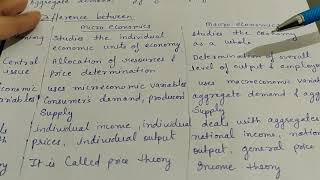 Aggregate
difference between
micro economics
macro economics
Studies the individual
economic units of economy
studies the economy
as a whole
Central
issue
Allocation of resources &
price determination
Determination of overall
level of output & employ
uses microeconomic variables
Consumer's demand, producer
Supply
uses macroeconomic variable
aggregate demand &
Supply
individual income, individual
prices, individual output
deals with aggregates
national income, nation
output, general price
It is Called price theory
Income theory